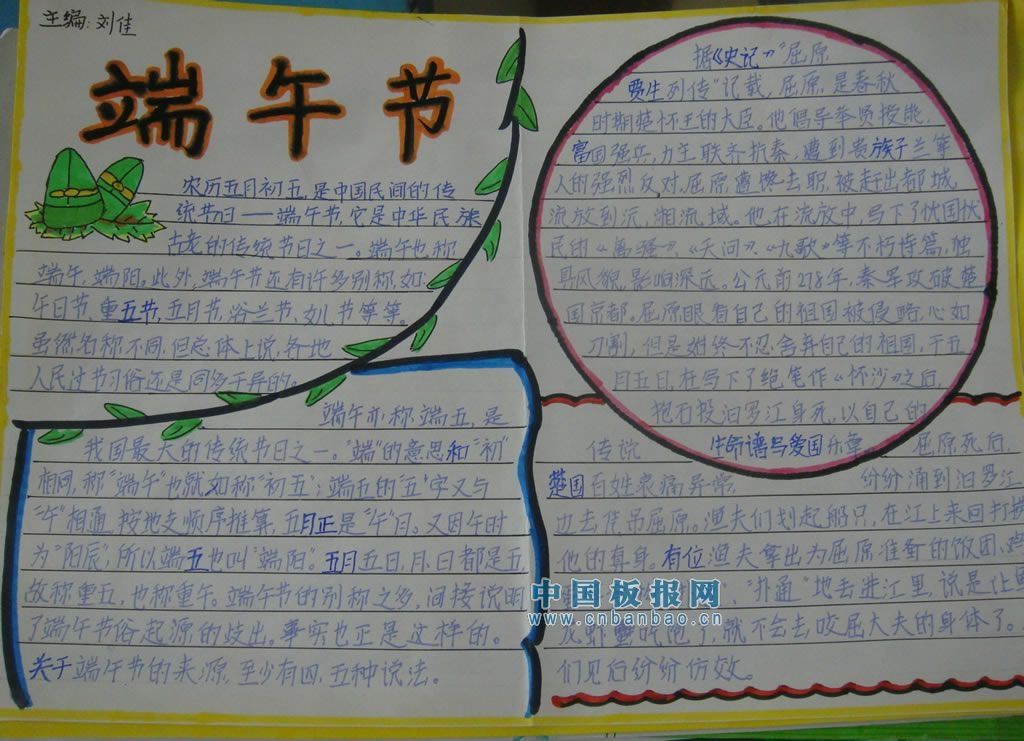 主编:刘佳
端午节
农历五月初五,是中国民间的传
统节日——端午节,它是中华民族
古老的传统节日之一。端午也称
端午,端阳。此外,端午节还有许多别称,如
午日节,重五节,五月节,浴兰节,女儿节等等。
虽然名称不同,但总体上说,各地
人民过节习俗还是同多于异的。
端午亦称端五,是
我国最大的传统节日之一。"端"的意思和"初"
相同,称"端午"也就如称"初五";端五的"五"字又与
"午"相通,按地支顺序推算,五月正是"午"月。又因午时
为"阳辰",所以端五也叫"端阳"。五月五日,月、日都是五,
故称重五,也称重午。端午节的别称之多,间接说明
了端午节俗起源的歧出。事实也正是这样的。
关于端午节的来源,至少有四、五种说法。
据《史记》"屈原
贾生列传"记载,屈原,是春秋
时期楚怀王的大臣。他倡导举贤授能,
富国强兵,力主联齐抗秦,遭到贵族子兰等
人的强烈反对,屈原遭馋去职,被赶出都城,
流放到沅,湘流域。他在流放中,写下了忧国忧
民的《离骚》、《天问》、《九歌》等不朽诗篇,独
具风貌,影响深远。公元前278年,秦军攻破楚
国京都。屈原眼看自己的祖国被侵略,心如
刀割,但是始终不忍舍弃自己的祖国,于五
月五日,在写下了绝笔作《怀沙》之后,
抱石投汨罗江身死,以自己的
生命谱写爱国乐章。
传说 屈原死后,
楚国百姓哀痛异常, 纷纷涌到汨罗江
边去凭吊屈原。渔夫们划起船只,在江上来回打捞
他的真身。有位渔夫拿出为屈原准备的饭团、鸡
"扑通"地丢进江里,说是让鱼
龙虾蟹吃饱了,就不会去咬屈大夫的身体了。
们见后纷纷仿效。
中国板报网
www.cnbanbao.cn